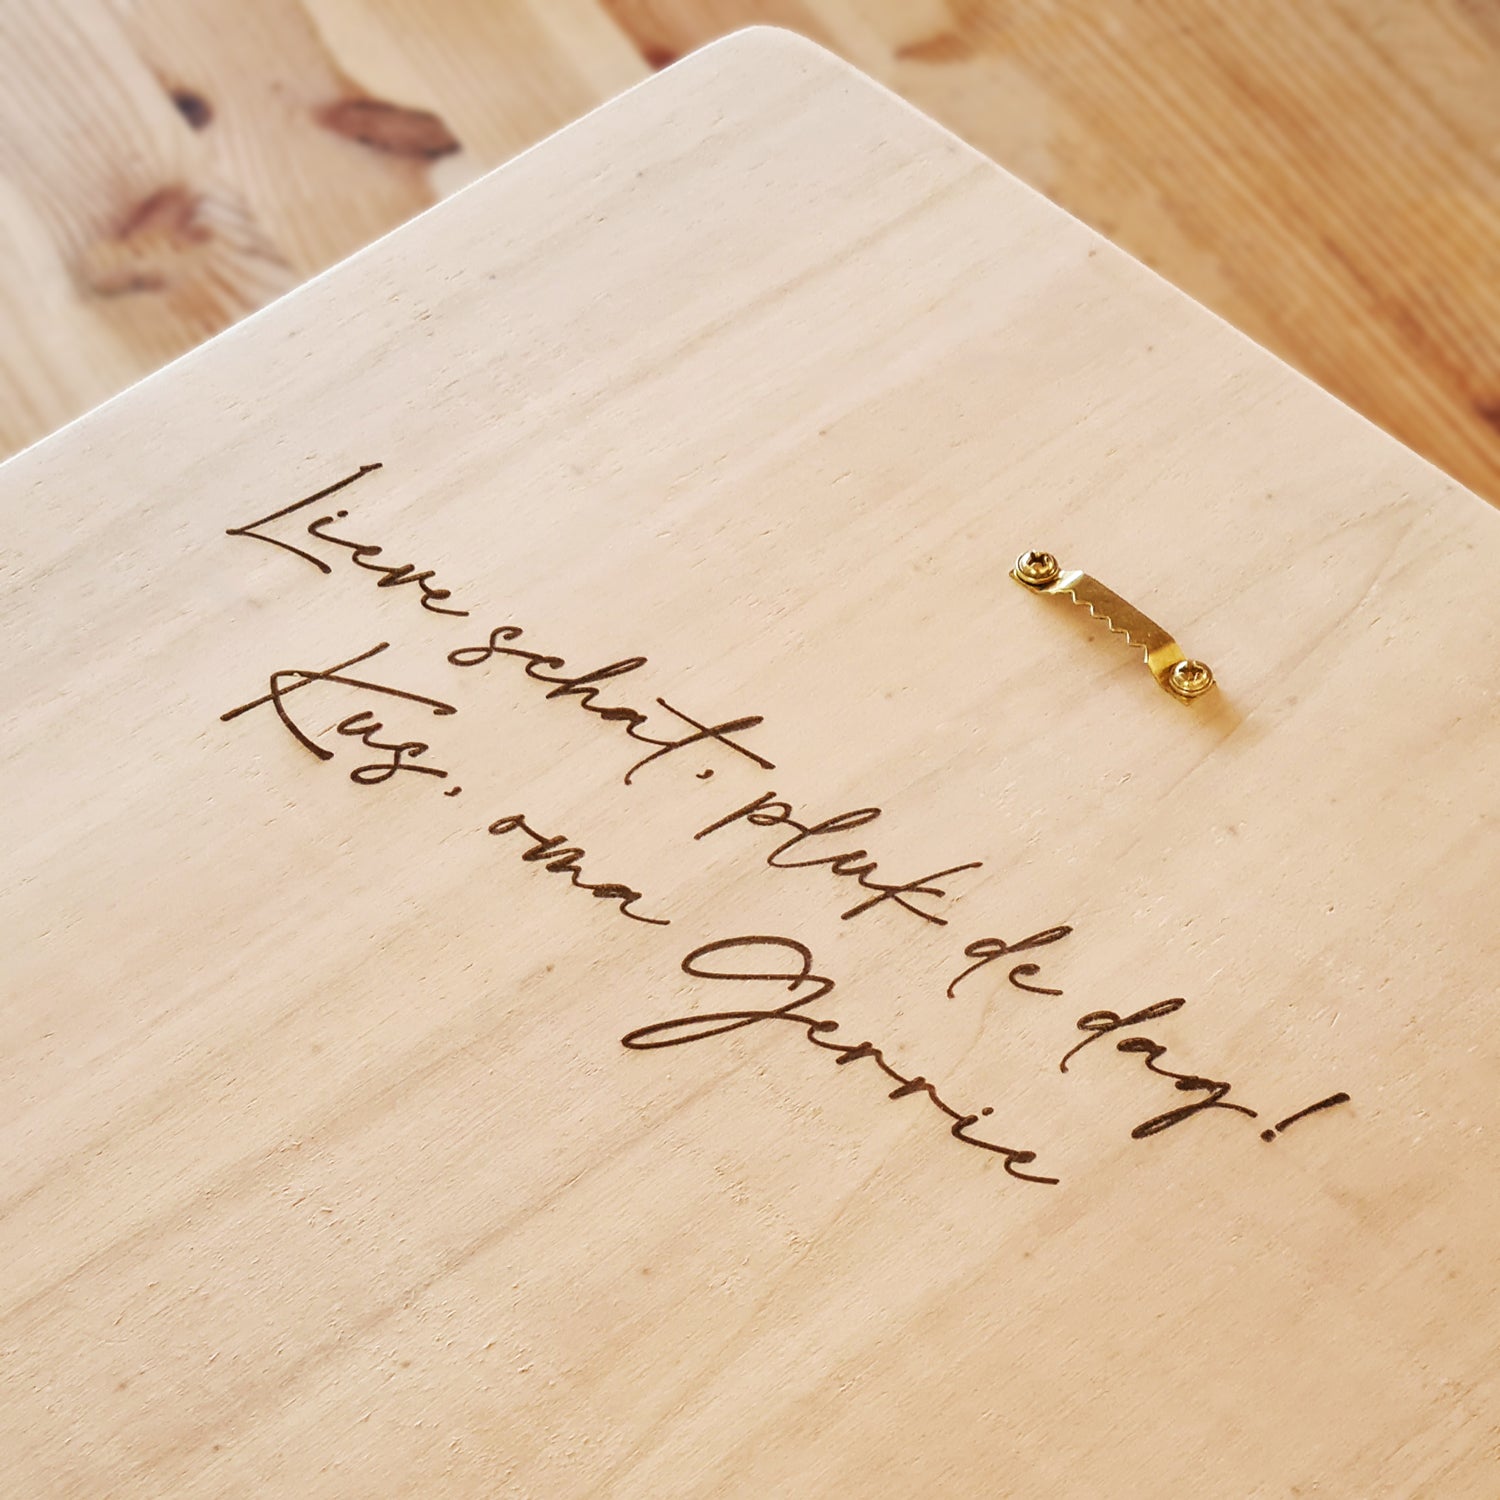 Lieve schat, pluk de dag!
Kus, oma Gerrie